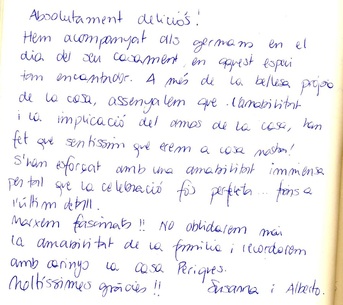 Absolutament deliciós!
Hem acompanyat als germans en el
dia del seu casament, en aquest espai
tan encantador. A més de la bellesa pròpia
de la casa, assenyalem que l'amabilitat
i la implicació del amos de la casa, han
fet que sentissim que erem a casa nostra!
S'han esforçat amb una amabilitat immensa
per tal que la celebració fós perfecta... fins a
l'últim detall.
Marxem fascinats!! No oblidarem mai
la amabilitat de la familia i recordarem
amb carinyo la casa Periques.
Moltíssimes gràcies!! Susanna i Alberto.